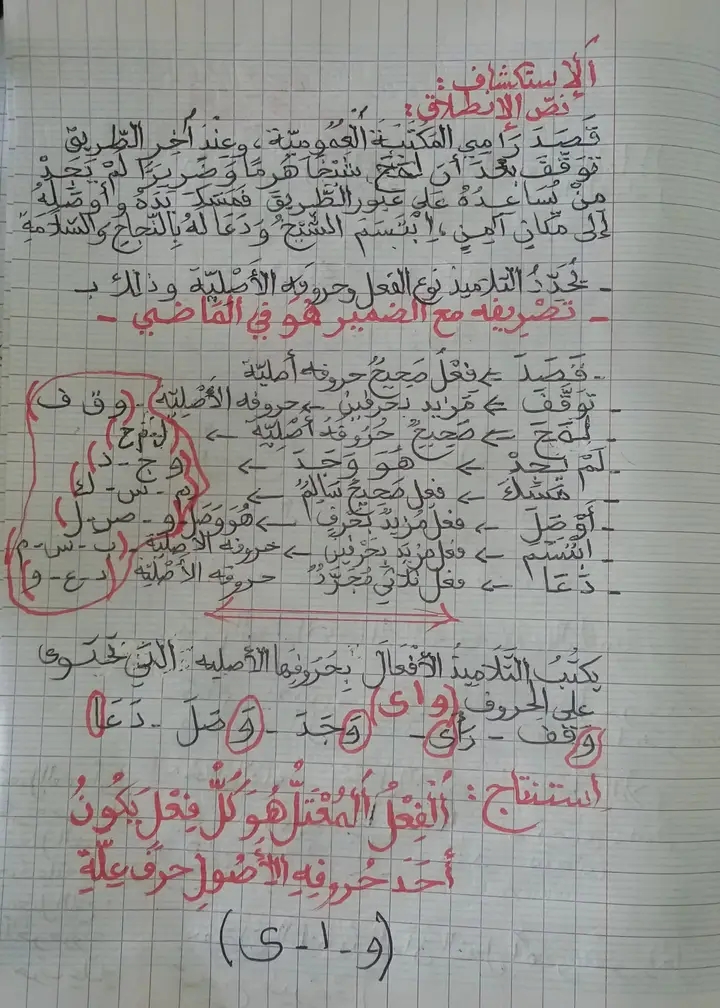 الإستكشاف:
نصّ الإنطلاق:
قَصَدَ رَامِي المَكتَبَةَ العُمُوميّة، وعِنْدَ آخِرِ الطّرِيقِ
تَوَقّفَ بَعْدَ أنْ لَمَحَ شَيْخًا هَرِمًا وَضَرِيرًا لَمْ يَجِدْ
مَنْ يُسَاعِدُهُ عَلى عبُورِ الطّرِيقِ فَمَسَكَ يَدَهُ وأَوصَلَهُ
إلى مَكانٍ آمِنٍ، اِبْتَسَمَ الشّيْخُ وَدَعَا لهُ بِالنّجاحِ والسّلامَةِ
- يُحَدِّدُ التلاميذ نوع الفعل وحروفه الأَصْليّة وذلك بـ
- تصْرِيفه مع الضمير هُوَ في المَاضي -
- قَصَدَ ⇐ فِعْلٌ صَحِيحٌ حروفه أصليّة
- تَوَقَّفَ ⇐ مَزيد بحرفين ← حروفه الأَصْليّة (و ق ف)
- لَمَحَ ⇐ صَحِيحٌ حُرُوفُهُ أصْلِيّة ← (ل م ح)
- لَمْ يَجِدْ ← هُوَ وَجَدَ ← (و - ج - د)
- مَسَكَ ← فعل صَحيحٌ سَالِمٌ ← (م - س - ك
- أَوْصَلَ ← فعل مَزيدٌ بحَرْفٍ ← هُوَ وَصَلَ (و - ص - ل)
- ابْتَسَمَ ← فعل مزيد بحَرْفَيْنِ ← حروفه الأصليّة (ب - س - م)
- دَعَا ← فعل ثلاثي مُجَرَّدٌ حروفه الأصْليّة (د - ع - و)
يكتُبُ التّلاميذُ الأفْعَالَ بِحُرُوفِها الأصليه الّتِي تَحْتَوى
على الحروف (و ا ى)
وَقَفَ - رَأى - وَجَدَ - وَصَلَ - دَعَا
استنتاج: الْفِعْلُ الْمُعْتَلُّ هُوَ كُلُّ فِعْلٍ يَكُونُ
أَحَدَ حُرُوفِهِ الأُصُولِ حرفُ عِلّةٍ
(و - ا - ى)